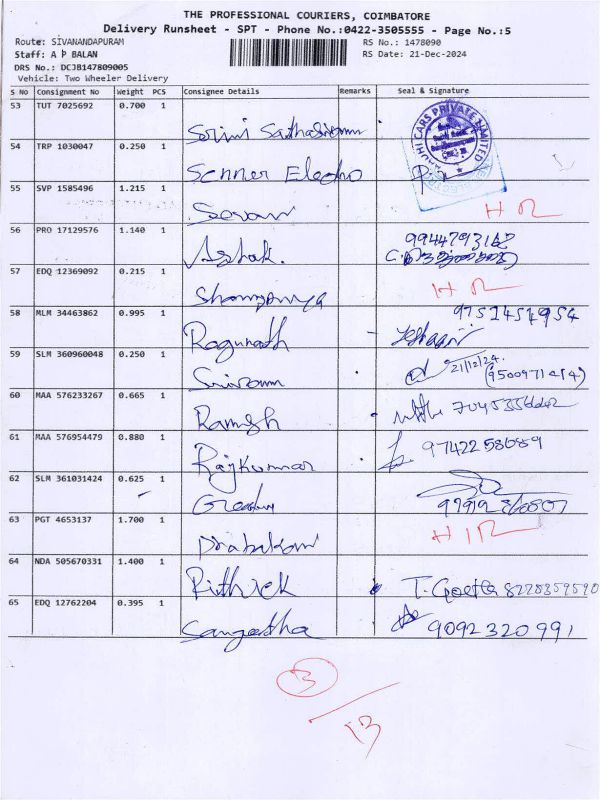 THE PROFESSIONAL COURIERS, COIMBATORE
Delivery Runsheet - SPT - Phone No.:0422-3505555 - Page No.:5
Route: SIVANANDAPURAM
RS No.: 1478090
Staff: A P BALAN
RS Date: 21-Dec-2024
DRS No.: DCJB147809005
Vehicle: Two Wheeler Delivery
S No Consignment No Weight PCS Consignee Details Remarks Seal & Signature
53 TUT 7025692 0.700 1
54 TRP 1030047 0.250 1
55 SVP 1585496 1.215 1 H R
56 PRO 17129576 1.140 1 Ashok.
57 EDQ 12369092 0.215 1 H R
58 MLM 34463862 0.995 1 Ragunath
59 SLM 360960048 0.250 1 Sriram 21/12/24.
(9500971414)
60 MAA 576233267 0.665 1 Ramesh
61 MAA 576954479 0.880 1 Rajkumar 9742258689
62 SLM 361031424 0.625 1
63 PGT 4653137 1.700 1 Prabakaran
64 NDA 505670331 1.400 1 Rithick T. Geetha 8228359590
65 EDQ 12762204 0.395 1 Sangeetha 9092320991
3
13